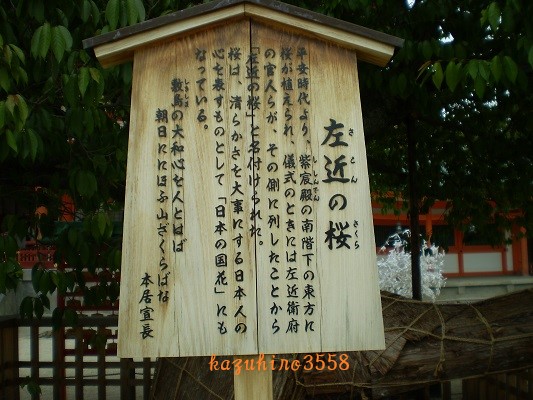 左近の桜
さこんさくら
平安時代より、紫宸殿の南階下の東方に
ししんでん
桜が植えられ、儀式のときには左近衛府
の官人らが、その側に列したことから
「左近の桜」と名付けられた。
桜は、清らかさを大事にする日本人の
心を表すものとして「日本の国花」にも
なっている。
敷島の大和心を人とはば
しきしま
朝日ににほふ山ざくらばな
本居宣長
kazuhiro3558